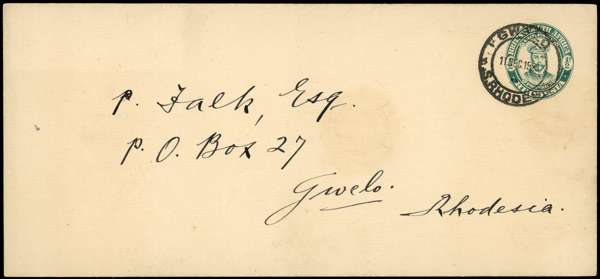 P. Falk, Esq.
P. O. Box 27
Gwelo.
Rhodesia.
GWELO
S.RHODESIA